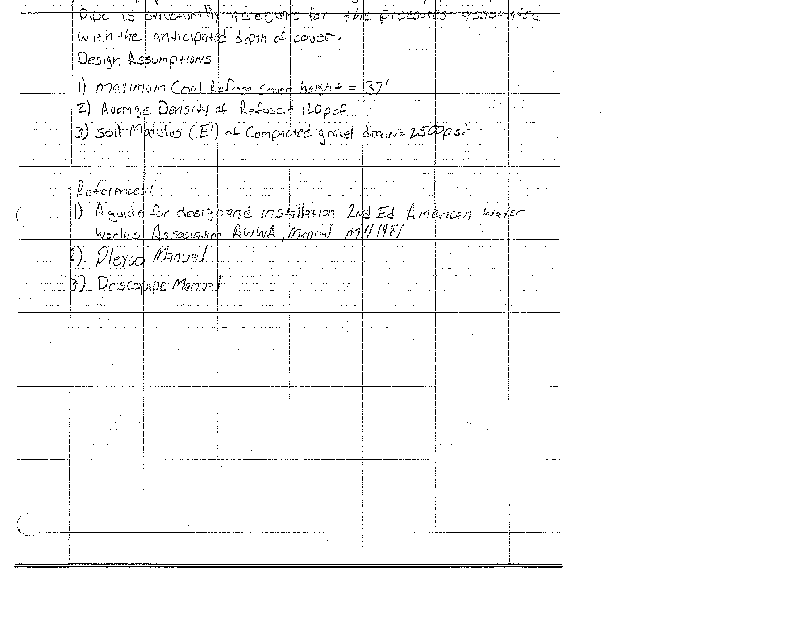 pipe is structurally adequate for the pressures associated
with the anticipated depth of cover.
Design Assumptions
1) Maximum Coal Refuse cover height = 137'
2) Average Density of Refuse = 120 pcf
3) Soil Modulus (E') of Compacted gravel drain = 2500 psi
References:
1) A guide for design and installation 2nd Ed American Water
Works Association AWWA, Manual M11 1987
2) Plexco Manual
3) Driscopipe Manual